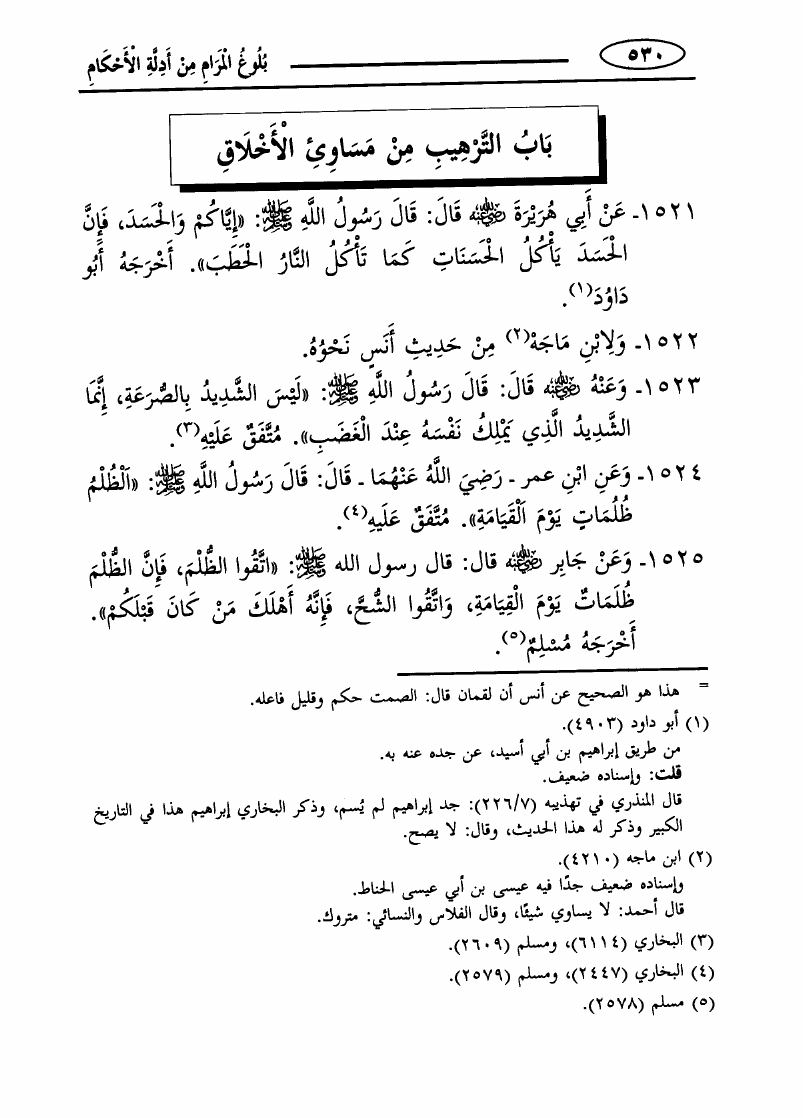 ٥٣٠ بُلُوغُ المَرَامِ مِنْ أَدِلَّةِ الْأَحْكَامِ
بَابُ التَّرْهِيبِ مِنْ مَسَاوِئِ الْأَخْلَاقِ
١٥٢١ـ عَنْ أَبِي هُرَيْرَةَ رضي الله عنه قَالَ: قَالَ رَسُولُ اللَّهِ ﷺ: «إِيَّاكُمْ وَالْحَسَدَ، فَإِنَّ
الْحَسَدَ يَأْكُلُ الْحَسَنَاتِ كَمَا تَأْكُلُ النَّارُ الْحَطَبَ». أَخْرَجَهُ أَبُو
دَاوُدَ(١).
١٥٢٢ـ وَلِابْنِ مَاجَهْ(٢) مِنْ حَدِيثِ أَنَسٍ نَحْوُهُ.
١٥٢٣ـ وَعَنْهُ رضي الله عنه قَالَ: قَالَ رَسُولُ اللَّهِ ﷺ: «لَيْسَ الشَّدِيدُ بِالصُّرَعَةِ، إِنَّمَا
الشَّدِيدُ الَّذِي يَمْلِكُ نَفْسَهُ عِنْدَ الْغَضَبِ». مُتَّفَقٌ عَلَيْهِ(٣).
١٥٢٤ـ وَعَنِ ابْنِ عمر ـ رَضِيَ اللَّهُ عَنْهُمَا ـ قَالَ: قَالَ رَسُولُ اللَّهِ ﷺ: «اَلْظُلْمُ
ظُلُمَاتٍ يَوْمَ اَلْقَيَامَةِ». مُتَّفَقٌ عَلَيهِ(٤).
١٥٢٥ـ وَعَنْ جَابِر رضي الله عنه قال: قال رسول الله ﷺ: «اتَّقُوا الظُّلْمَ، فَإِنَّ الظُّلْمَ
ظُلُمَاتٌ يَوْمَ الْقِيَامَةِ، وَاتَّقُوا الشُّحَّ، فَإِنَّهُ أَهْلَكَ مَنْ كَانَ قَبْلَكُمْ».
أَخْرَجَهُ مُسْلِمٌ(٥).
= هذا هو الصحيح عن أنس أن لقمان قال: الصمت حكم وقليل فاعله.
(١) أبو داود (٤٩٠٣).
من طريق إبراهيم بن أبي أسيد، عن جده عنه به.
قلت: وإسناده ضعيف.
قال المنذري في تهذيبه (٢٢٦/٧): جد إبراهيم لم يُسم، وذكر البخاري إبراهيم هذا في التاريخ
الكبير وذكر له هذا الحديث، وقال: لا يصح.
(٢) ابن ماجه (٤٢١٠).
وإسناده ضعيف جدًا فيه عيسى بن أبي عيسى الحناط.
قال أحمد: لا يساوي شيئًا، وقال الفلاس والنسائي: متروك.
(٣) البخاري (٦١١٤)، ومسلم (٢٦٠٩).
(٤) البخاري (٢٤٤٧)، ومسلم (٢٥٧٩).
(٥) مسلم (٢٥٧٨).